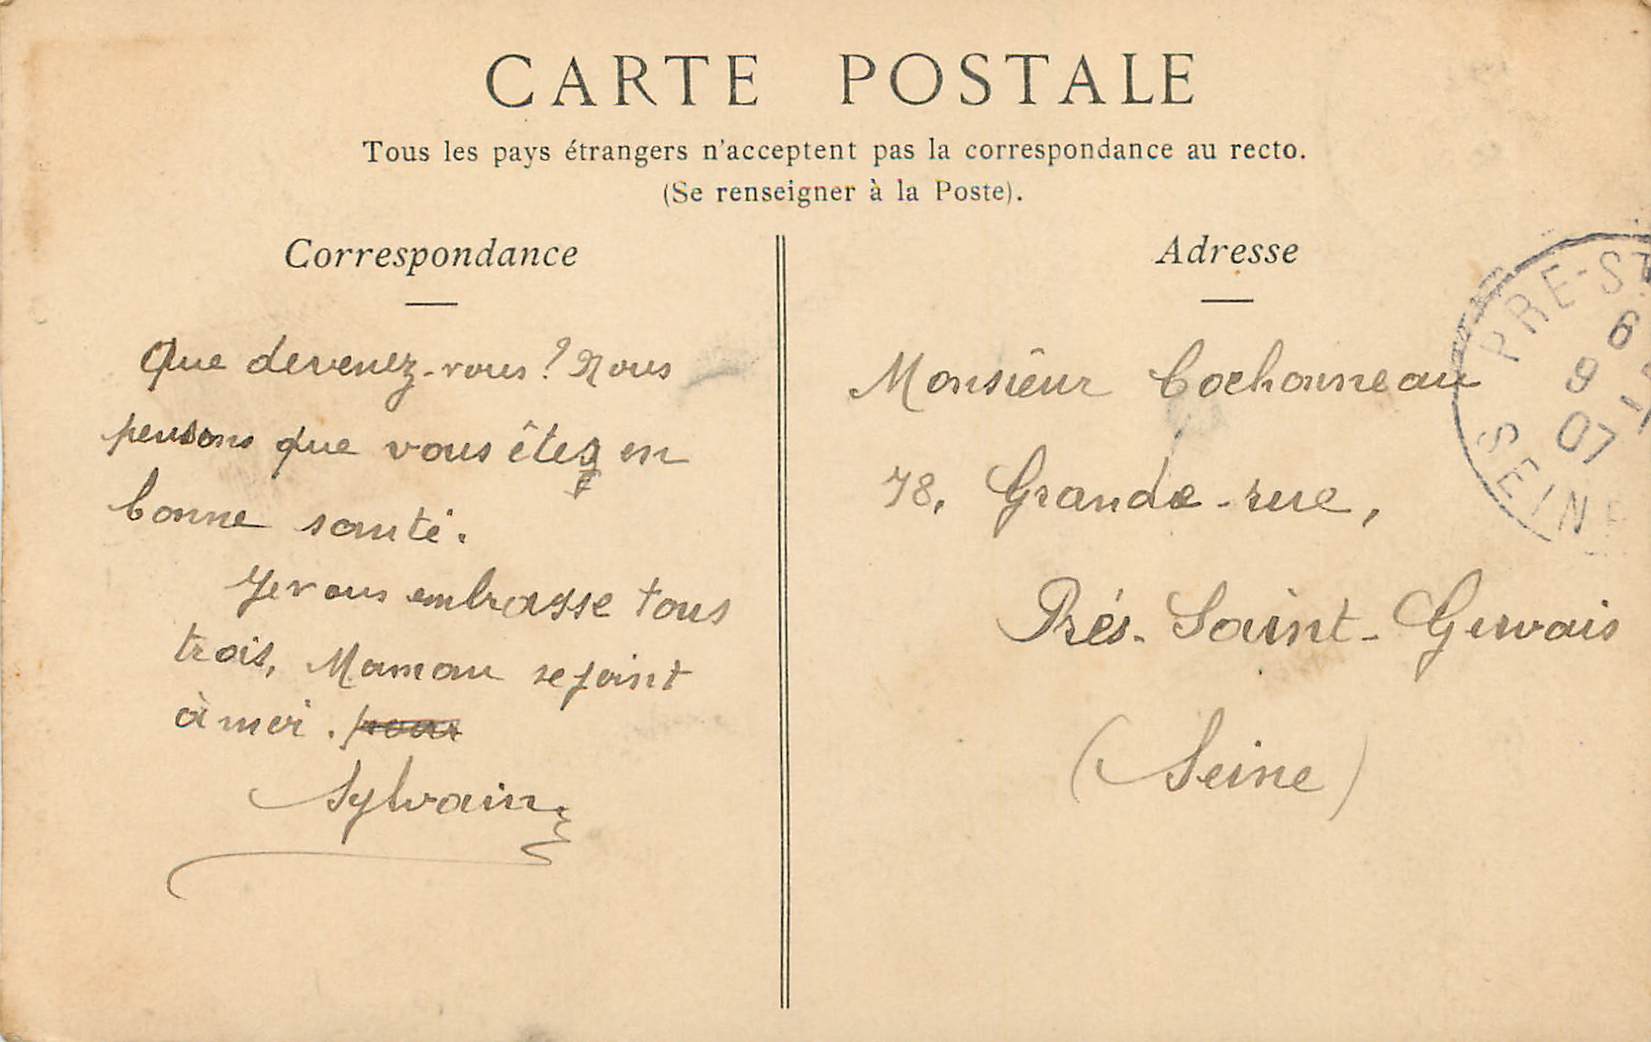 CARTE POSTALE
Tous les pays étrangers n'acceptent pas la correspondance au recto.
(Se renseigner à la Poste).
Correspondance
Que devenez-vous? Nous
pensons que vous êtes en
bonne santé.
Je vous embrasse tous
trois, Maman se joint
à moi.
Sylvain
Adresse
Monsieur Cochonneau
78, Grande-rue,
Prés-Saint-Gervais
(Seine)
PRE-ST
6
9
07
SEINE